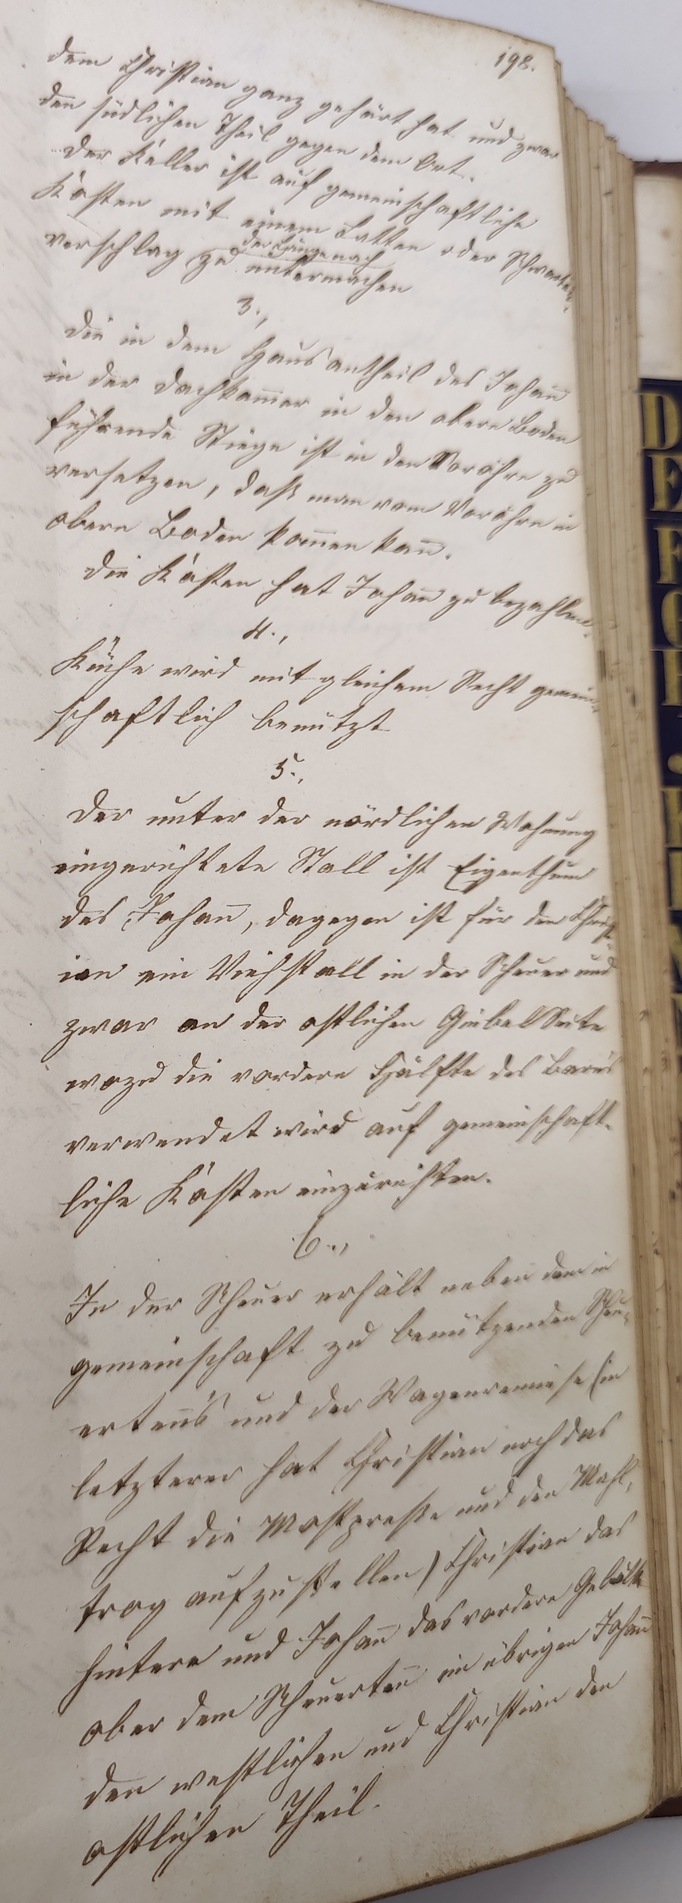 198.
dem Christian ganz gehört hat und zwar
den südlichen Theil gegen dem Ort.
Der Käller ist auf gemeinschaftliche
Kosten mit einem Latten oder Schwarten-
der Länge nach
verschlag zu untermachen
3.,
Die in dem Hausantheil des Johañ
in der Dachkamer in den obern Boden
führende Stiege ist in den Vorähren zu
versetzen, daß man vom Vorähren in
obern Boden komen kañ.
Die Kosten hat Johañ zu bezahlen.
4.,
Küche wird mit gleichem Recht gemein-
schaftlich benützt
5.,
Der unter der nördlichen Wohnung
eingerichtete Stall ist Eigenthum
des Johañ, dagegen ist für den Christ-
ian ein Viehstall in der Scheuer und
zwar an der ostlichen Giebel Seite
wozu die vordere Hälfte des Barns
verwendet wird auf gemeinschaft-
liche Kosten einzurichten.
6.,
In der Scheuer erhält neben dem in
gemeinschaft zu benützenden Scheu-
ertenn's und der Wagenremise (in
letzterer hat Christian noch das
Recht die Mostpresse und den Mahl-
trog aufzustellen) Christian das
hintere und Johañ das vordere Gebälk
ober dem Scheuerteñ im übrigen Johañ
den westlichen und Christian den
ostlichen Theil.
D
E
F
G
H